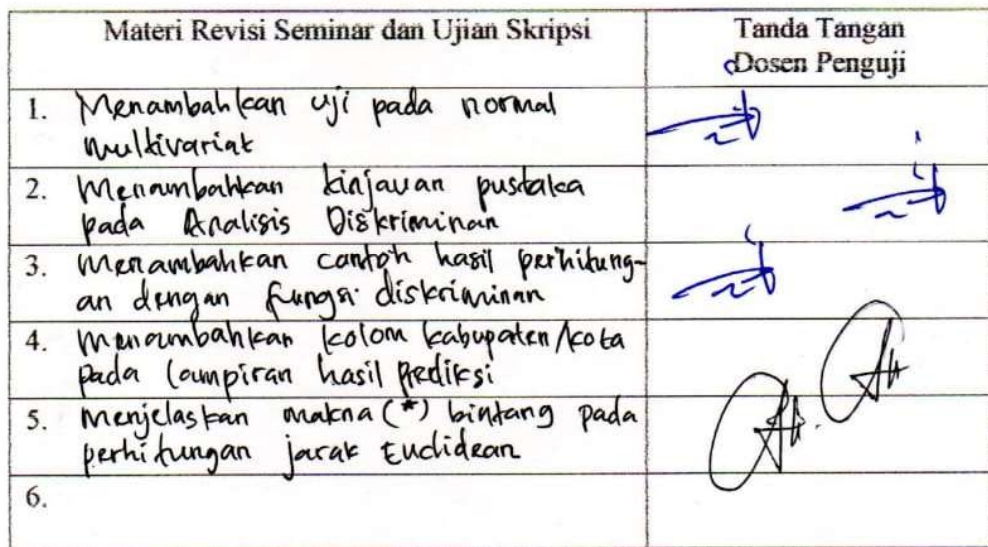 Materi Revisi Seminar dan Ujian Skripsi
Tanda Tangan
Dosen Penguji
1. Menambahkan uji pada normal
multivariat
2. Menambahkan tinjauan pustaka
pada Analisis Diskriminan
3. Menambahkan contoh hasil perhitung-
an dengan fungsi diskriminan
4. Menambahkan kolom kabupaten/kota
pada lampiran hasil prediksi
5. Menjelaskan makna (*) bintang pada
perhitungan jarak Euclidean
6.